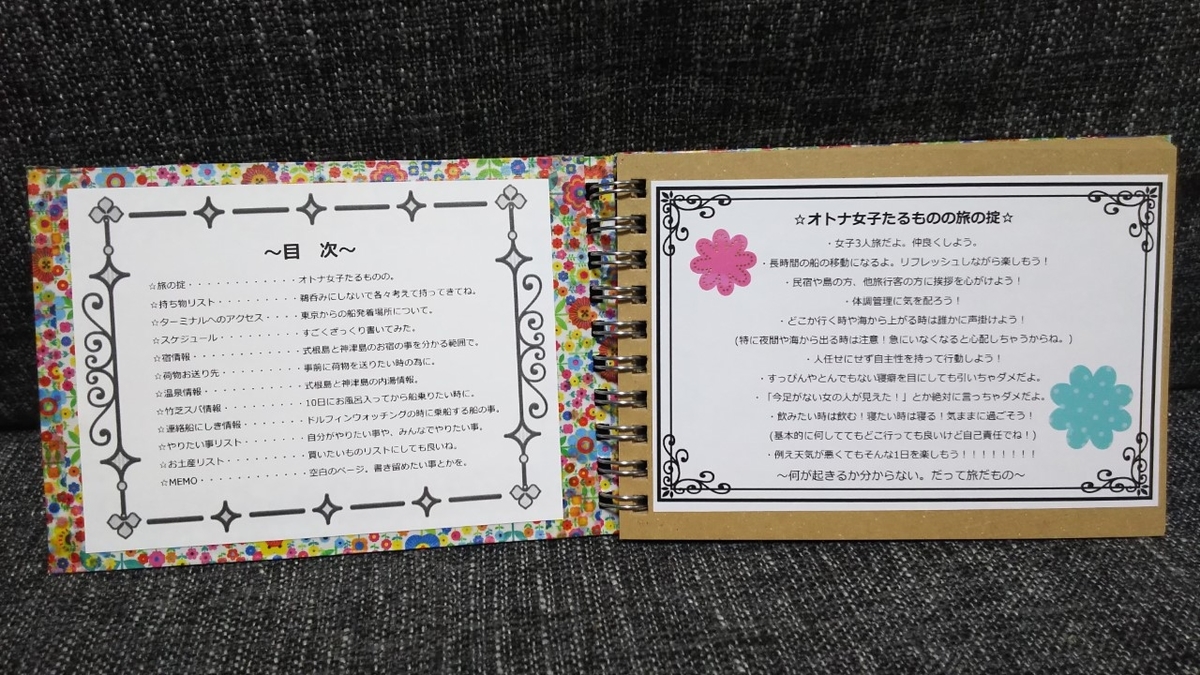 ～目　次～
☆旅の掟・・・・・・・・・・・・オトナ女子たるものの。
☆持ち物リスト・・・・・・・・・鵜呑みにしないで各々考えて持ってきてね。
☆ターミナルへのアクセス・・・・東京からの船発着場所について。
☆スケジュール・・・・・・・・・すごくざっくり書いてみた。
☆宿情報・・・・・・・・・・・・式根島と神津島のお宿の事を分かる範囲で。
☆荷物お送り先・・・・・・・・・事前に荷物を送りたい時の為に。
☆温泉情報・・・・・・・・・・・式根島と神津島の内湯情報。
☆竹芝スパ情報・・・・・・・・・10日にお風呂入ってから船乗りたい時に。
☆連絡船にしき情報・・・・・・・ドルフィンウォッチングの時に乗船する船の事。
☆やりたい事リスト・・・・・・・自分がやりたい事や、みんなでやりたい事。
☆お土産リスト・・・・・・・・・買いたいものリストにしても良いね。
☆MEMO・・・・・・・・・・・・空白のページ。書き留めたい事とかを。
☆オトナ女子たるものの旅の掟☆
・女子3人旅だよ。仲良くしよう。
・長時間の船の移動になるよ。リフレッシュしながら楽しもう！
・民宿や島の方、他旅行客の方に挨拶を心がけよう！
・体調管理に気を配ろう！
・どこか行く時や海から上がる時は誰かに声掛けよう！
(特に夜間や海から出る時は注意！急にいなくなると心配しちゃうからね。)
・人任せにせず自主性を持って行動しよう！
・すっぴんやとんでもない寝癖を目にしても引いちゃダメだよ。
・「今足がない女の人が見えた！」とか絶対に言っちゃダメだよ。
・飲みたい時は飲む！寝たい時は寝る！気ままに過ごそう！
(基本的に何しててもどこ行っても良いけど自己責任でね！)
・例え天気が悪くてもそんな1日を楽しもう！！！！！！！！
～何が起きるか分からない。だって旅だもの～